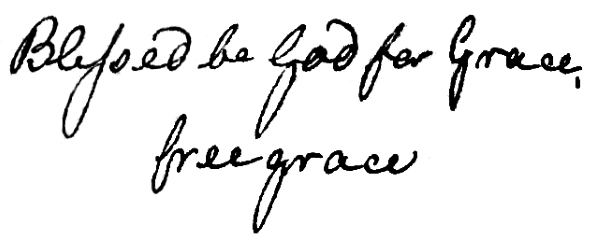 Blessed be God for Grace,
free grace